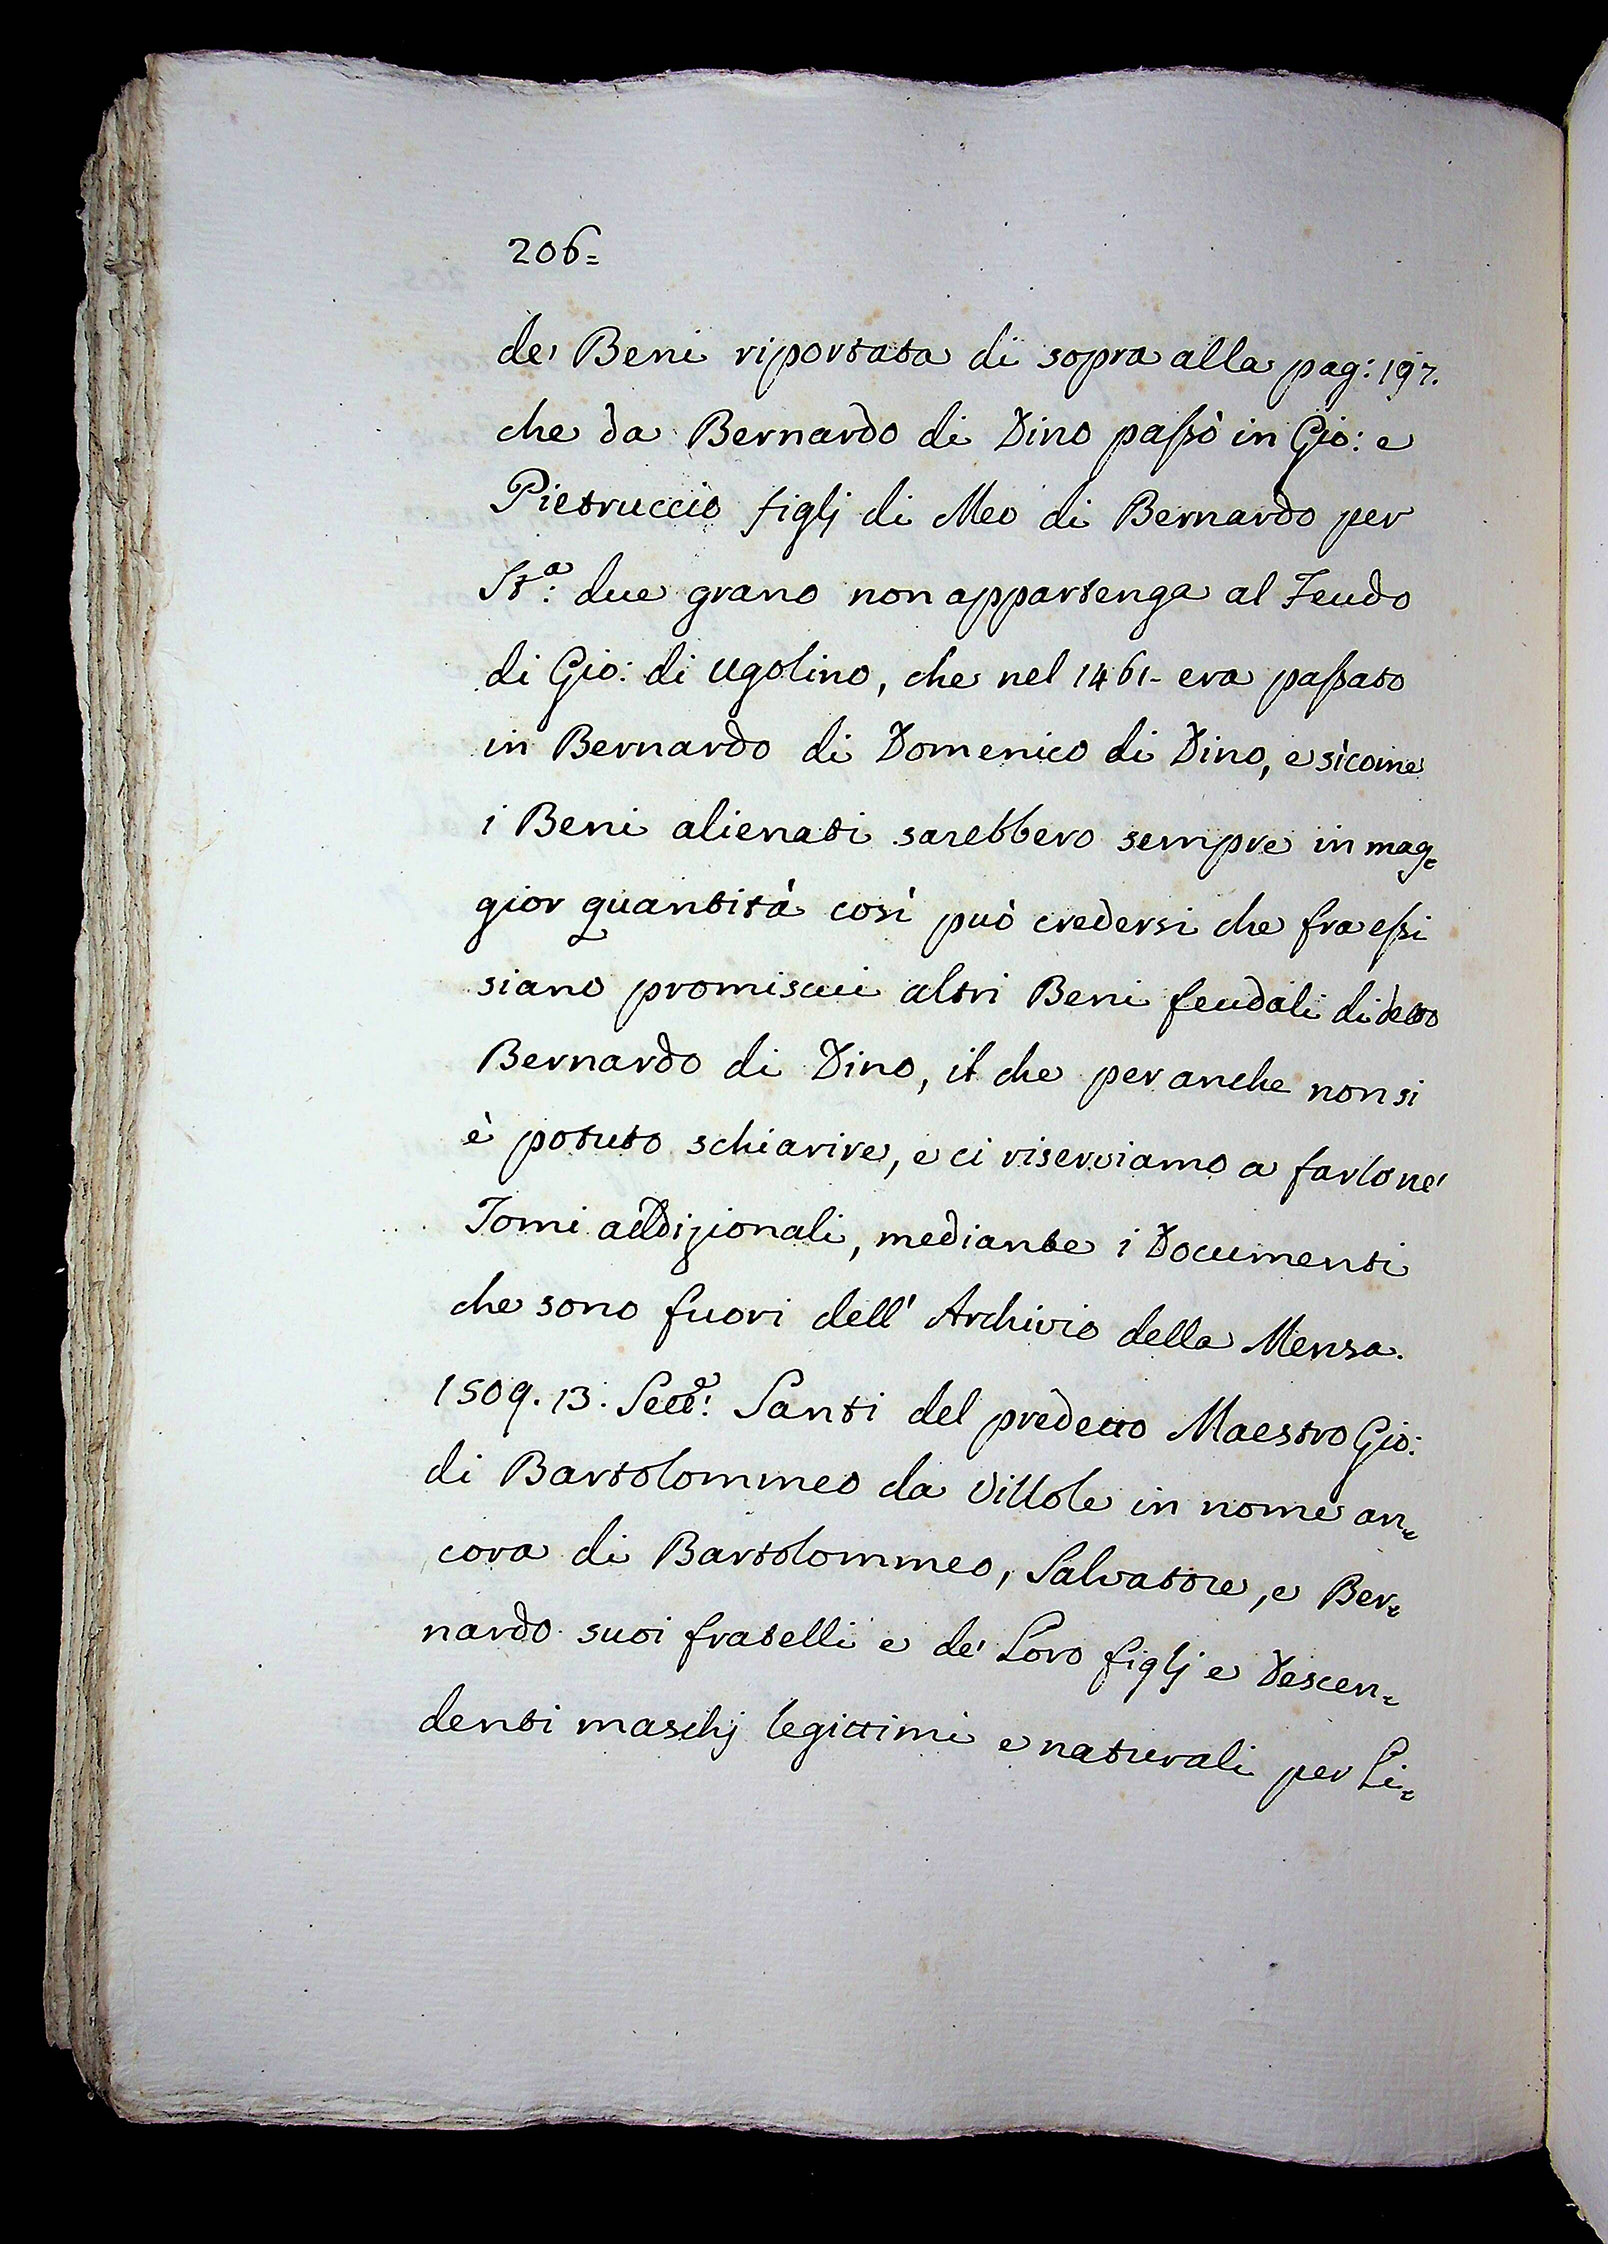 206=
de' Beni riportata di sopra alla pag: 197.
che da Bernardo di Dino passò in Gio: e
Pietruccio figlj di Meo di Bernardo per
St:ª due grano non appartenga al Feudo
di Gio: di Ugolino, che nel 1461- era passato
in Bernardo di Domenico di Dino, e sicome
i Beni alienati sarebbero sempre in mag=
gior quantità così può credersi che fra essi
siano promiscui altri Beni feudali di detto
Bernardo di Dino, il che per anche non si
è potuto schiarire, e ci riserviamo a farlo ne'
Tomi addizionali, mediante i Documenti
che sono fuori dell' Archivio della Mensa.
1509. 13. Santi del predetto Maestro Gio:
di Bartolommeo da Villole in nome an=
cora di Bartolommeo, Salvatore, e Ber=
nardo suoi fratelli e de' Loro figlj e Descen=
denti maschj legittimi e naturali per Li=